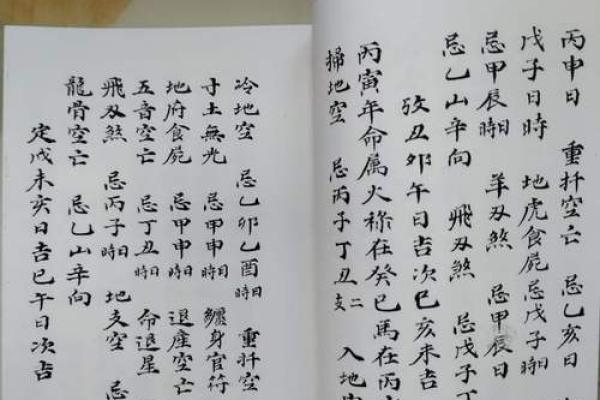 丙申日 重扦空亡 忌乙亥日
戊子日時 地虎食屍忌戊子時日
忌甲辰時日 羊刃煞 忌甲辰日
忌乙山辛向 飛刃煞 忌戊子
攷丑卯午日吉次巳亥未吉
丙寅年命属火祿在癸巳馬在丙
掃地空 忌丙子丁丑二支 入地
冷地空 忌乙卯乙酉時日 重扦空
寸土無光 忌甲申時日 纏身官符
地府食屍 忌甲申時日 退産空亡
五音空亡 忌丁丑時日 命退星
飛刃煞 忌丙子時日 地支空 忌
龍骨空亡 忌乙山辛向
定戍未亥日吉巳午日次吉